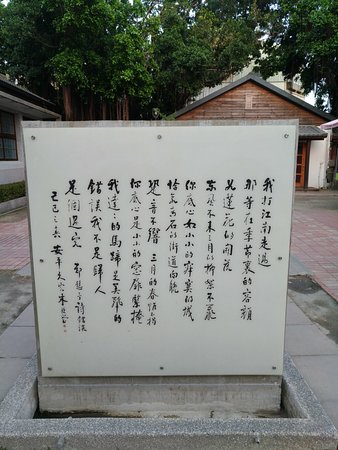 我打江南走過
那等在季節裏的容顏
如蓮花的開落
東風不來三月的柳絮不飛
你底心如小小的寂寞的城
恰若青石的街道向晚
跫音不響 三月的春帷不揭
你底心是小小的窗扉緊掩
我達々的馬蹄是美麗的
錯誤我不是歸人
是個過客 鄭愁予詩錯誤
己巳之冬